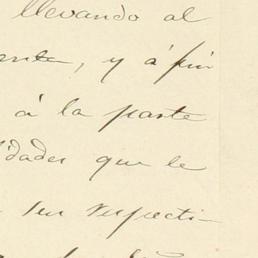 llevando al
ente, y á fin
á la parte
idades que le
su respecti-